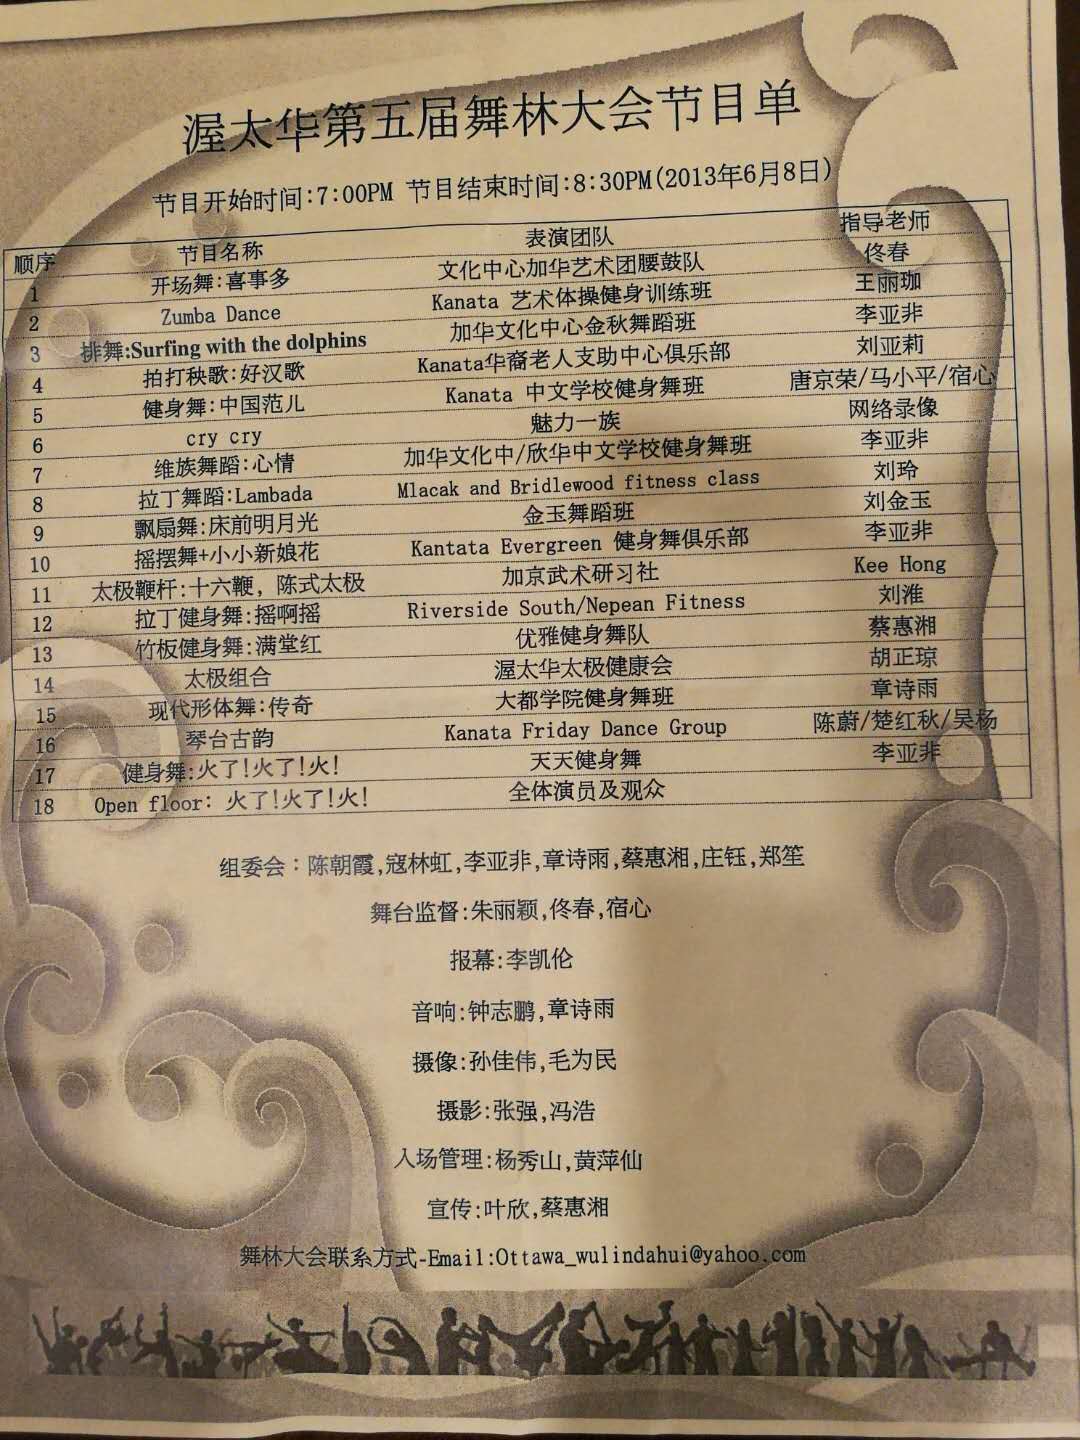 渥太华第五届舞林大会节目单
节目开始时间:7:00PM 节目结束时间:8:30PM(2013年6月8日)
顺序 节目名称 表演团队 指导老师
1 开场舞:喜事多 文化中心加华艺术团腰鼓队 佟春
2 Zumba Dance Kanata 艺术体操健身训练班 王丽珈
3 排舞:Surfing with the dolphins 加华文化中心金秋舞蹈班 李亚非
4 拍打秧歌:好汉歌 Kanata华裔老人支助中心俱乐部 刘亚莉
5 健身舞:中国范儿 Kanata 中文学校健身舞班 唐京荣/马小平/宿心
6 cry cry 魅力一族 网络录像
7 维族舞蹈:心情 加华文化中/欣华中文学校健身舞班 李亚非
8 拉丁舞蹈:Lambada Mlacak and Bridlewood fitness class 刘玲
9 飘扇舞:床前明月光 金玉舞蹈班 刘金玉
10 摇摆舞+小小新娘花 Kantata Evergreen 健身舞俱乐部 李亚非
11 太极鞭杆:十六鞭, 陈式太极 加京武术研习社 Kee Hong
12 拉丁健身舞:摇啊摇 Riverside South/Nepean Fitness 刘淮
13 竹板健身舞:满堂红 优雅健身舞队 蔡惠湘
14 太极组合 渥太华太极健康会 胡正琼
15 现代形体舞:传奇 大都学院健身舞班 章诗雨
16 琴台古韵 Kanata Friday Dance Group 陈蔚/楚红秋/吴杨
17 健身舞:火了!火了!火! 天天健身舞 李亚非
18 Open floor: 火了!火了!火! 全体演员及观众
组委会:陈朝霞,寇林虹,李亚非,章诗雨,蔡惠湘,庄钰,郑笙
舞台监督:朱丽颖,佟春,宿心
报幕:李凯伦
音响:钟志鹏,章诗雨
摄像:孙佳伟,毛为民
摄影:张强,冯浩
入场管理:杨秀山,黄萍仙
宣传:叶欣,蔡惠湘
舞林大会联系方式-Email:Ottawa_wulindahui@yahoo.com